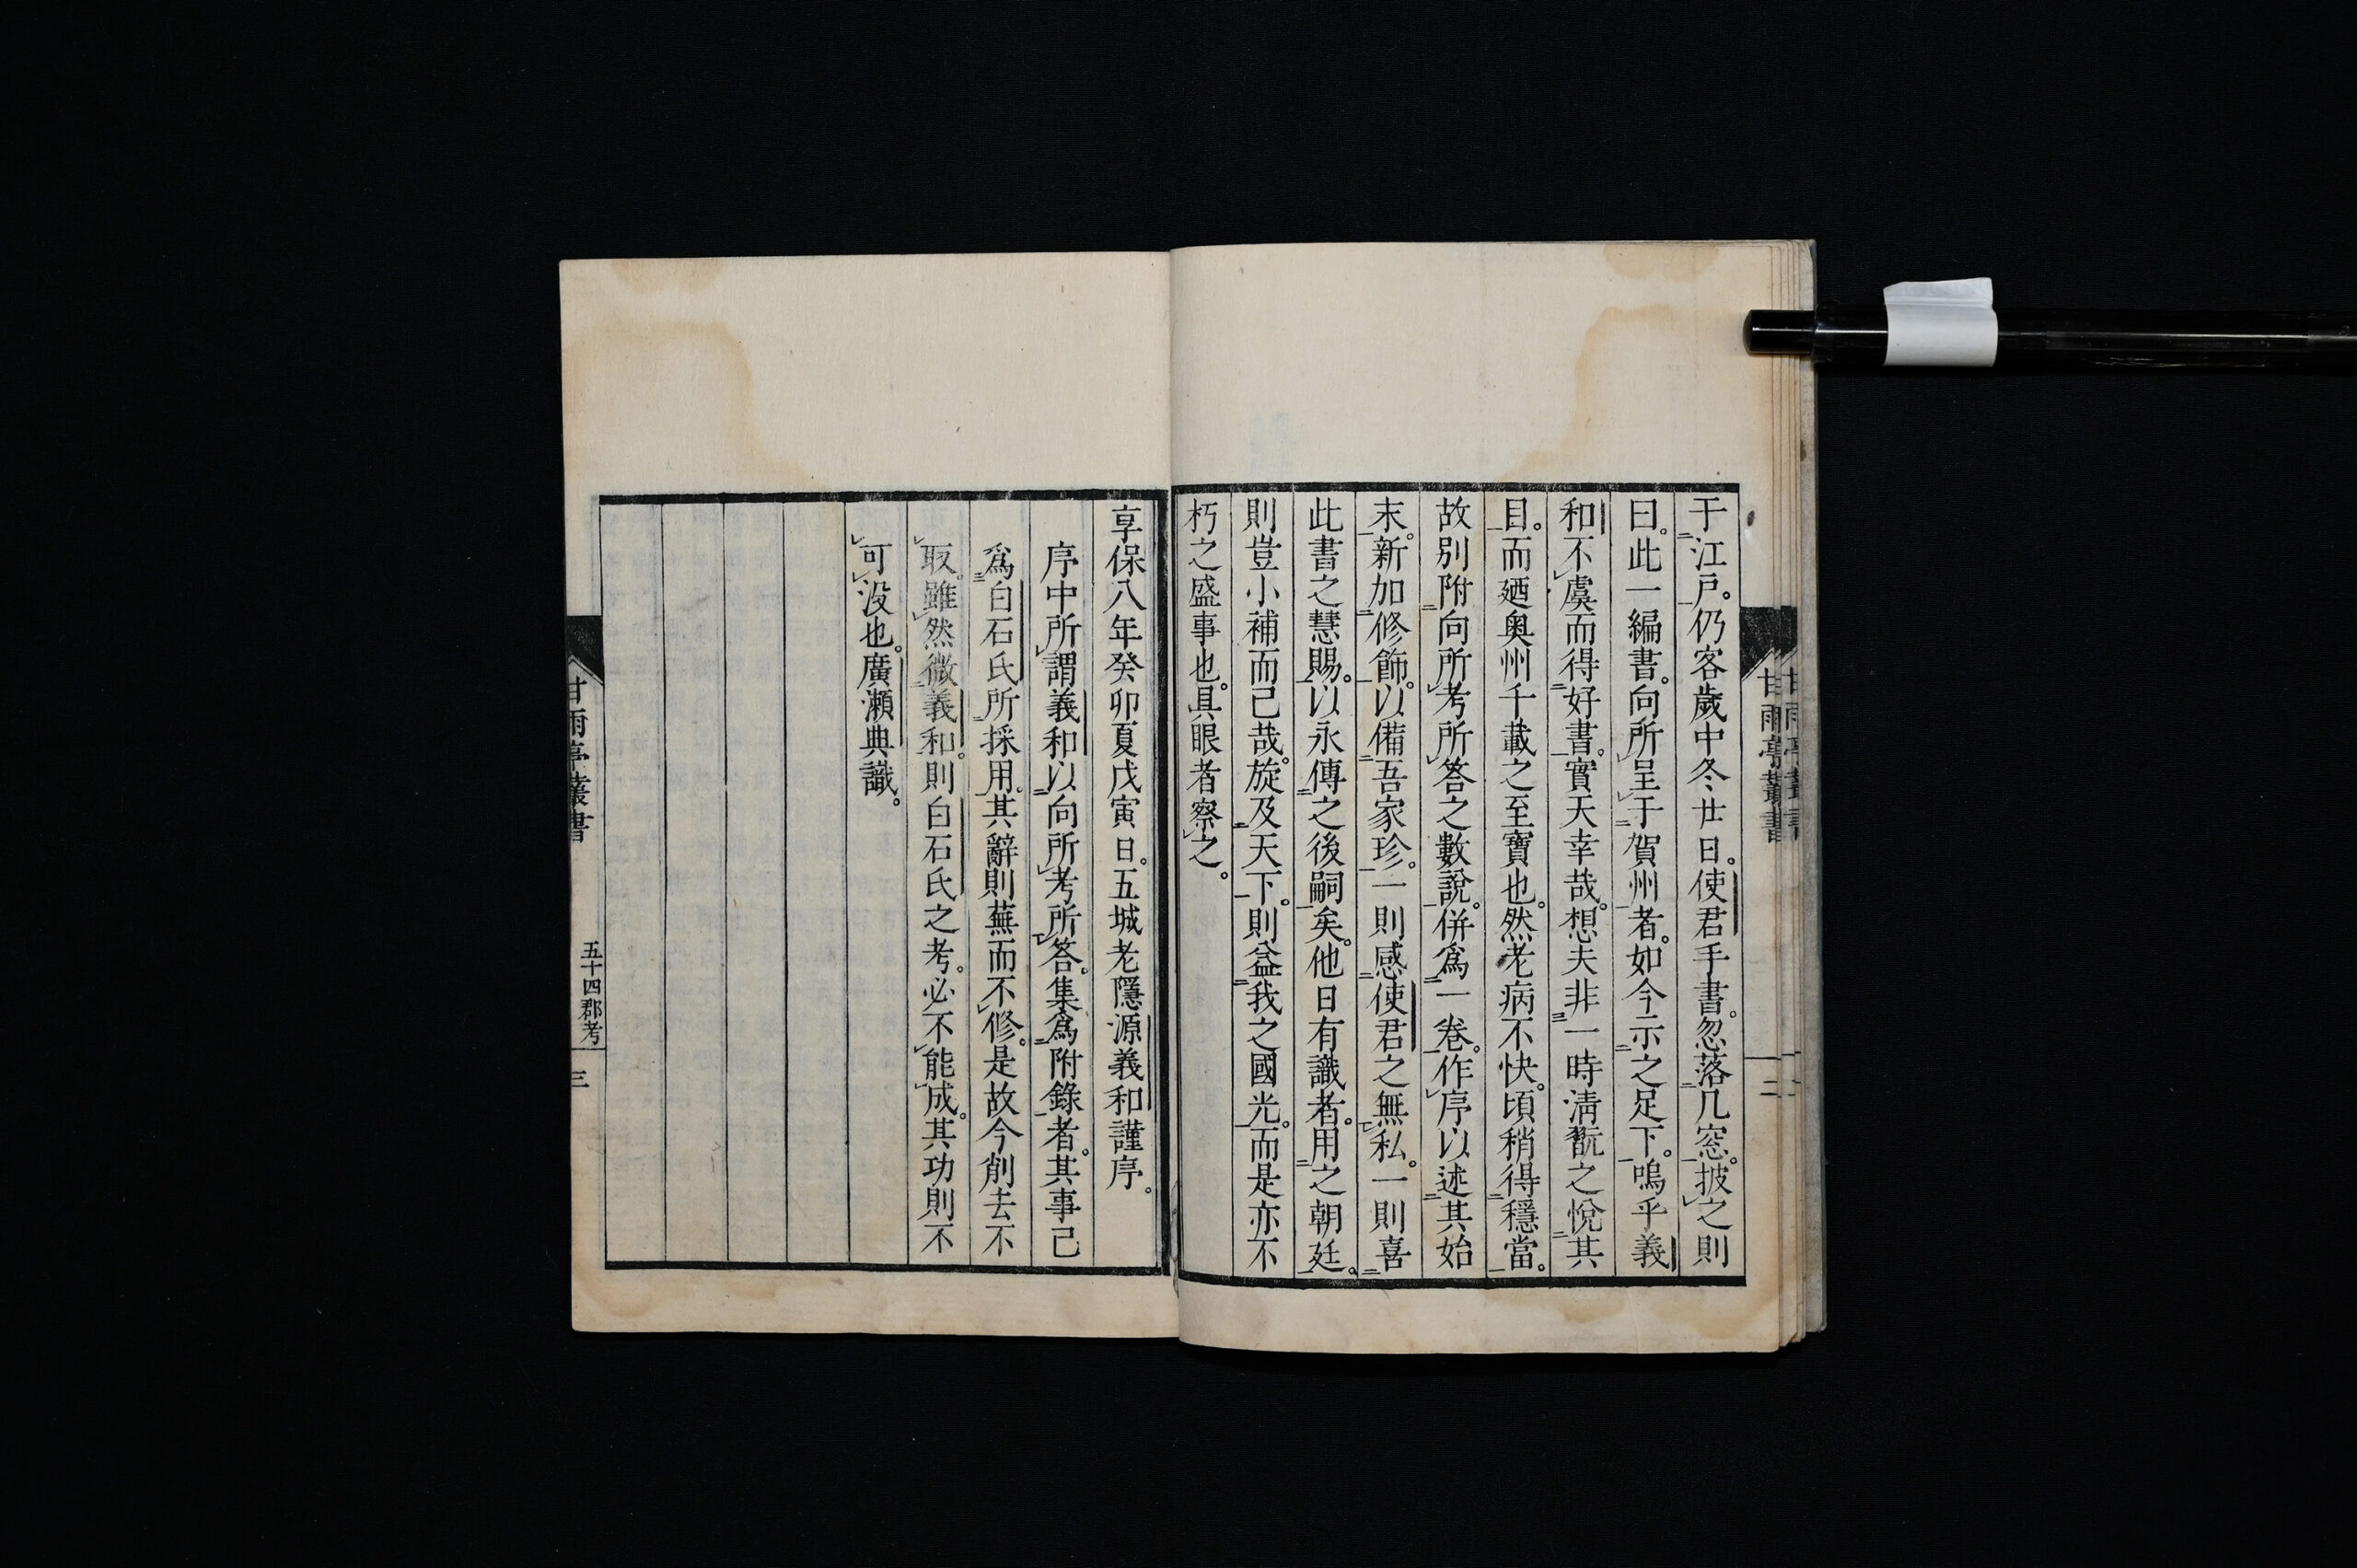 于江戸。仍客歲中冬廿日。使君手書。忽落几窓。披之則
曰。此一編書。向所呈于賀州者。如今示之足下。嗚乎義
和不虞而得好書。實天幸哉。想夫非一時清翫之悅其
目。而廼奥州千載之至寶也。然老病不快。頃稍得穩當。
故別附向所考所答之數說。併爲一卷。作序以述其始
末。新加修飾。以備吾家珍。一則感使君之無私。一則喜
此書之慧賜。以永傳之後嗣矣。他日有識者。用之朝廷。
則豈小補而己哉。旋及天下。則益我之國光。而是亦不
朽之盛事也。具眼者察之。
享保八年癸卯夏戊寅日。五城老隱源義和謹序。
序中所謂義和以向所考所答。集爲附錄者。其事己
爲白石氏所採用。其辭則蕪而不修。是故今削去不
取。雖然微義和。則白石氏之考。必不能成。其功則不
可沒也。廣瀬典識。
甘雨亭叢書
二
甘雨亭叢書
五十四郡考
三